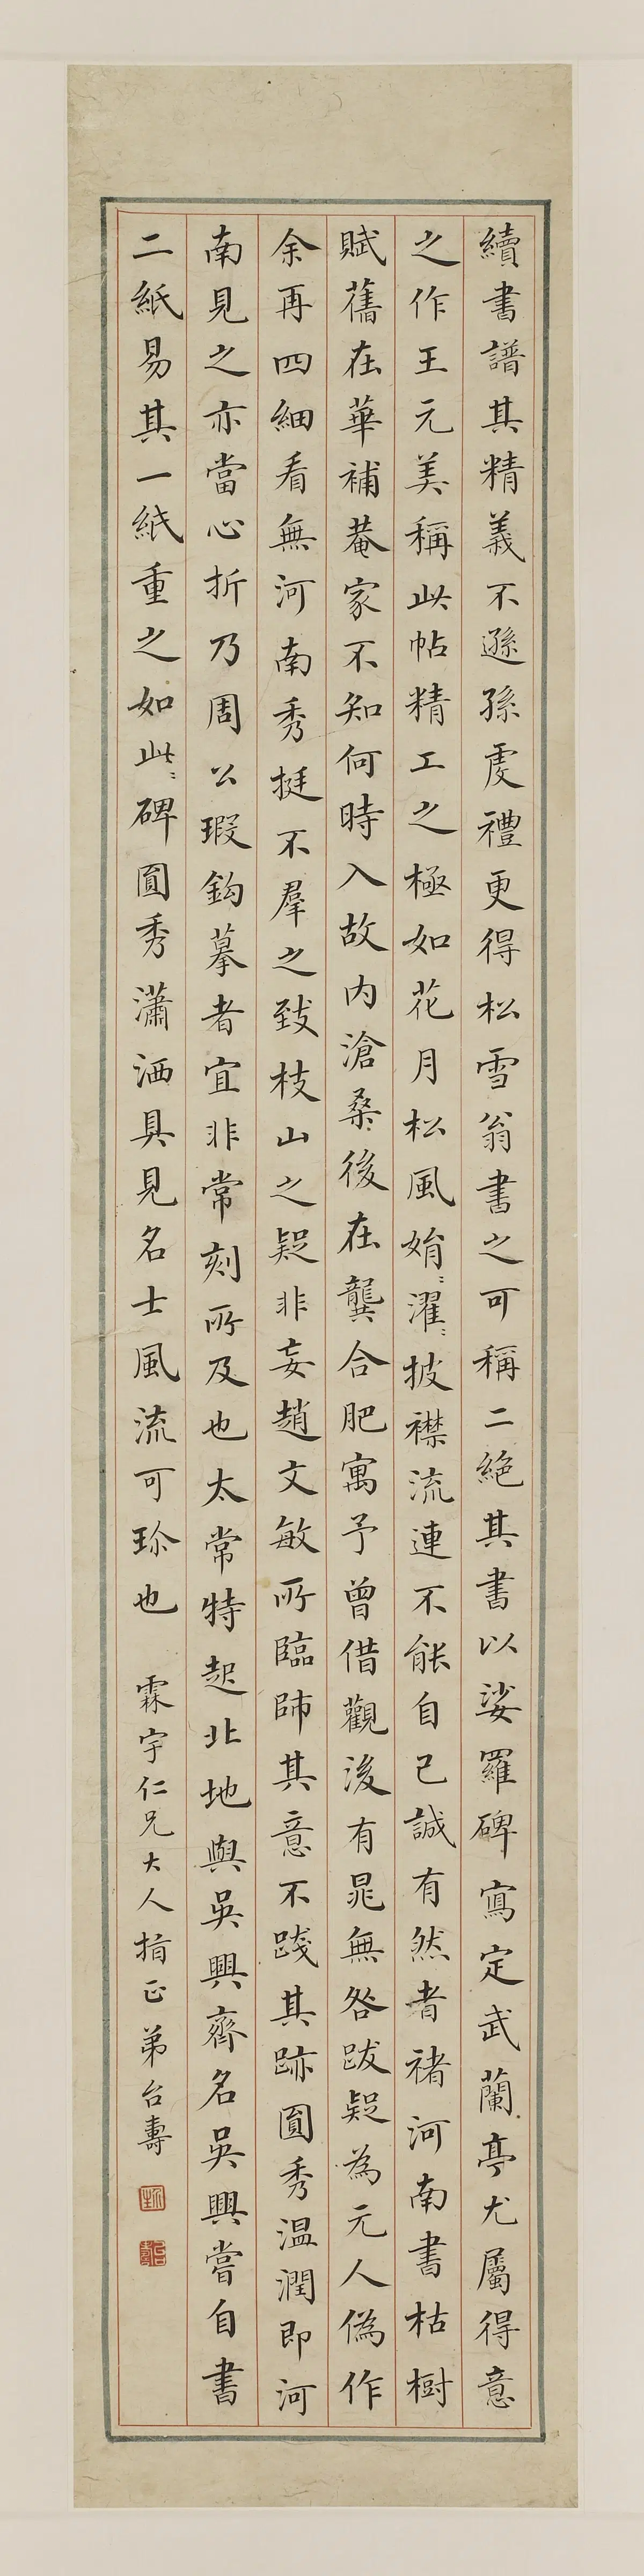 續書譜其精義不遜孫虔禮更得松雪翁書之可稱二絕其書以娑羅碑寫定武蘭亭尤屬得意
之作王元美稱此帖精工之極如花月松風娟〻濯〻披襟流連不能自已誠有然者褚河南書枯樹
賦舊在華補菴家不知何時入故內滄桑後在龔合肥寓予曾借觀後有晁無咎跋疑為元人偽作
余再四細看無河南秀挺不羣之致枝山之疑非妄趙文敏所臨師其意不踐其跡圓秀温潤即河
南見之亦當心折乃周公瑕鈎摹者宜非常刻所及也太常特起北地與吳興齊名吳興嘗自書
二紙易其一紙重之如此〻碑圓秀瀟洒具見名士風流可珍也 霖宇仁兄大人指正 弟台壽